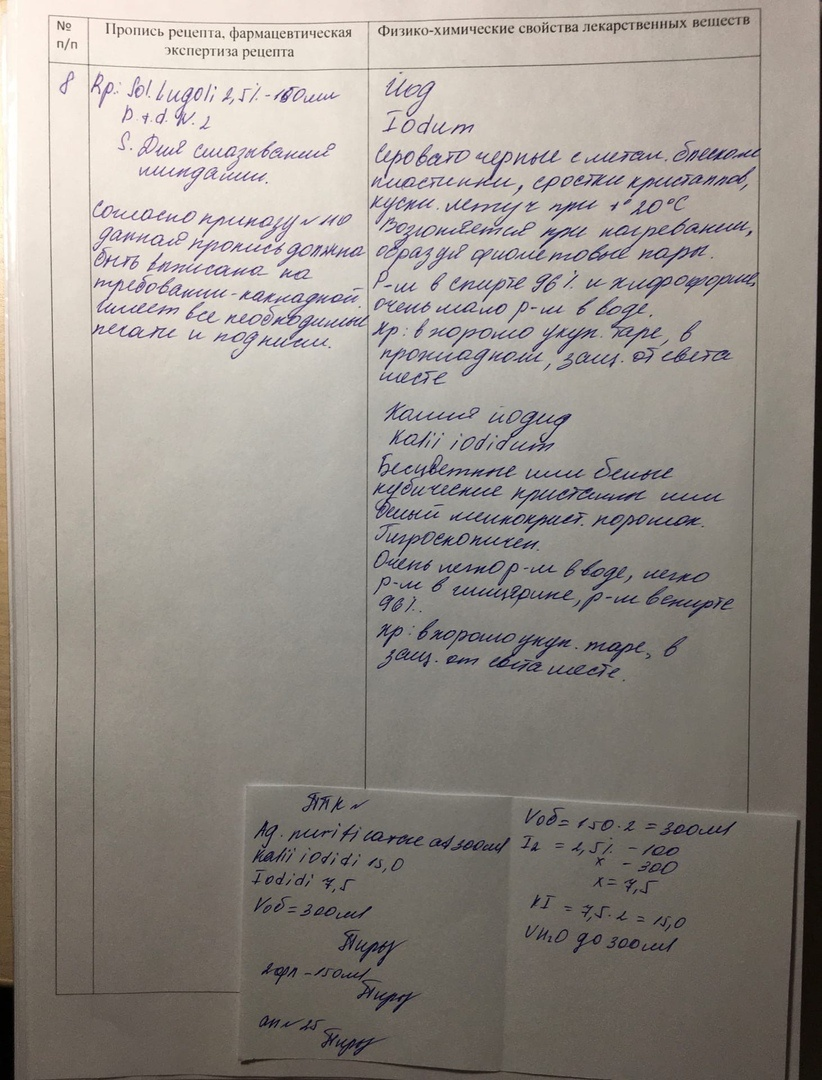 №
п/п
Пропись рецепта, фармацевтическая
экспертиза рецепта
Физико-химические свойства лекарственных веществ
8
Rp: Sol. Lugoli 2,5% - 150мл
D.t.d. N. 2
S. Для смазывания
миндалин.
Согласно приказу №110
данная пропись должна
быть выписана на
требовании-накладной.
Имеет все необходимые
печати и подписи.
Йод
Iodum
Серовато черные с метал. блеском
пластинки, сростки кристаллов,
куски. летуч при t° 20°C
Возгоняется при нагревании,
образуя фиолетовые пары.
Р-м в спирте 96% и хлороформе,
очень мало р-м в воде.
Хр: в хорошо укуп. таре, в
прохладном, защ. от света
месте
Калия йодид
Kalii iodidum
Бесцветные или белые
кубические кристаллы или
белый мелкокрист. порошок.
Гигроскопичен.
Очень легко р-м в воде, легко
р-м в глицерине, р-м в спирте
96%.
Хр: в хорошо укуп. таре, в
защ. от света месте.
ППК №
Aq. purificatae ad 300ml
Kalii iodidi 15,0
Iodidi 7,5
Vоб = 300ml
2фл - 150ml
ан № 25
Vоб = 150·2 = 300ml
I2 = 2,5% - 100
x - 300
x = 7,5
KI = 7,5·2 = 15,0
VH2O до 300ml